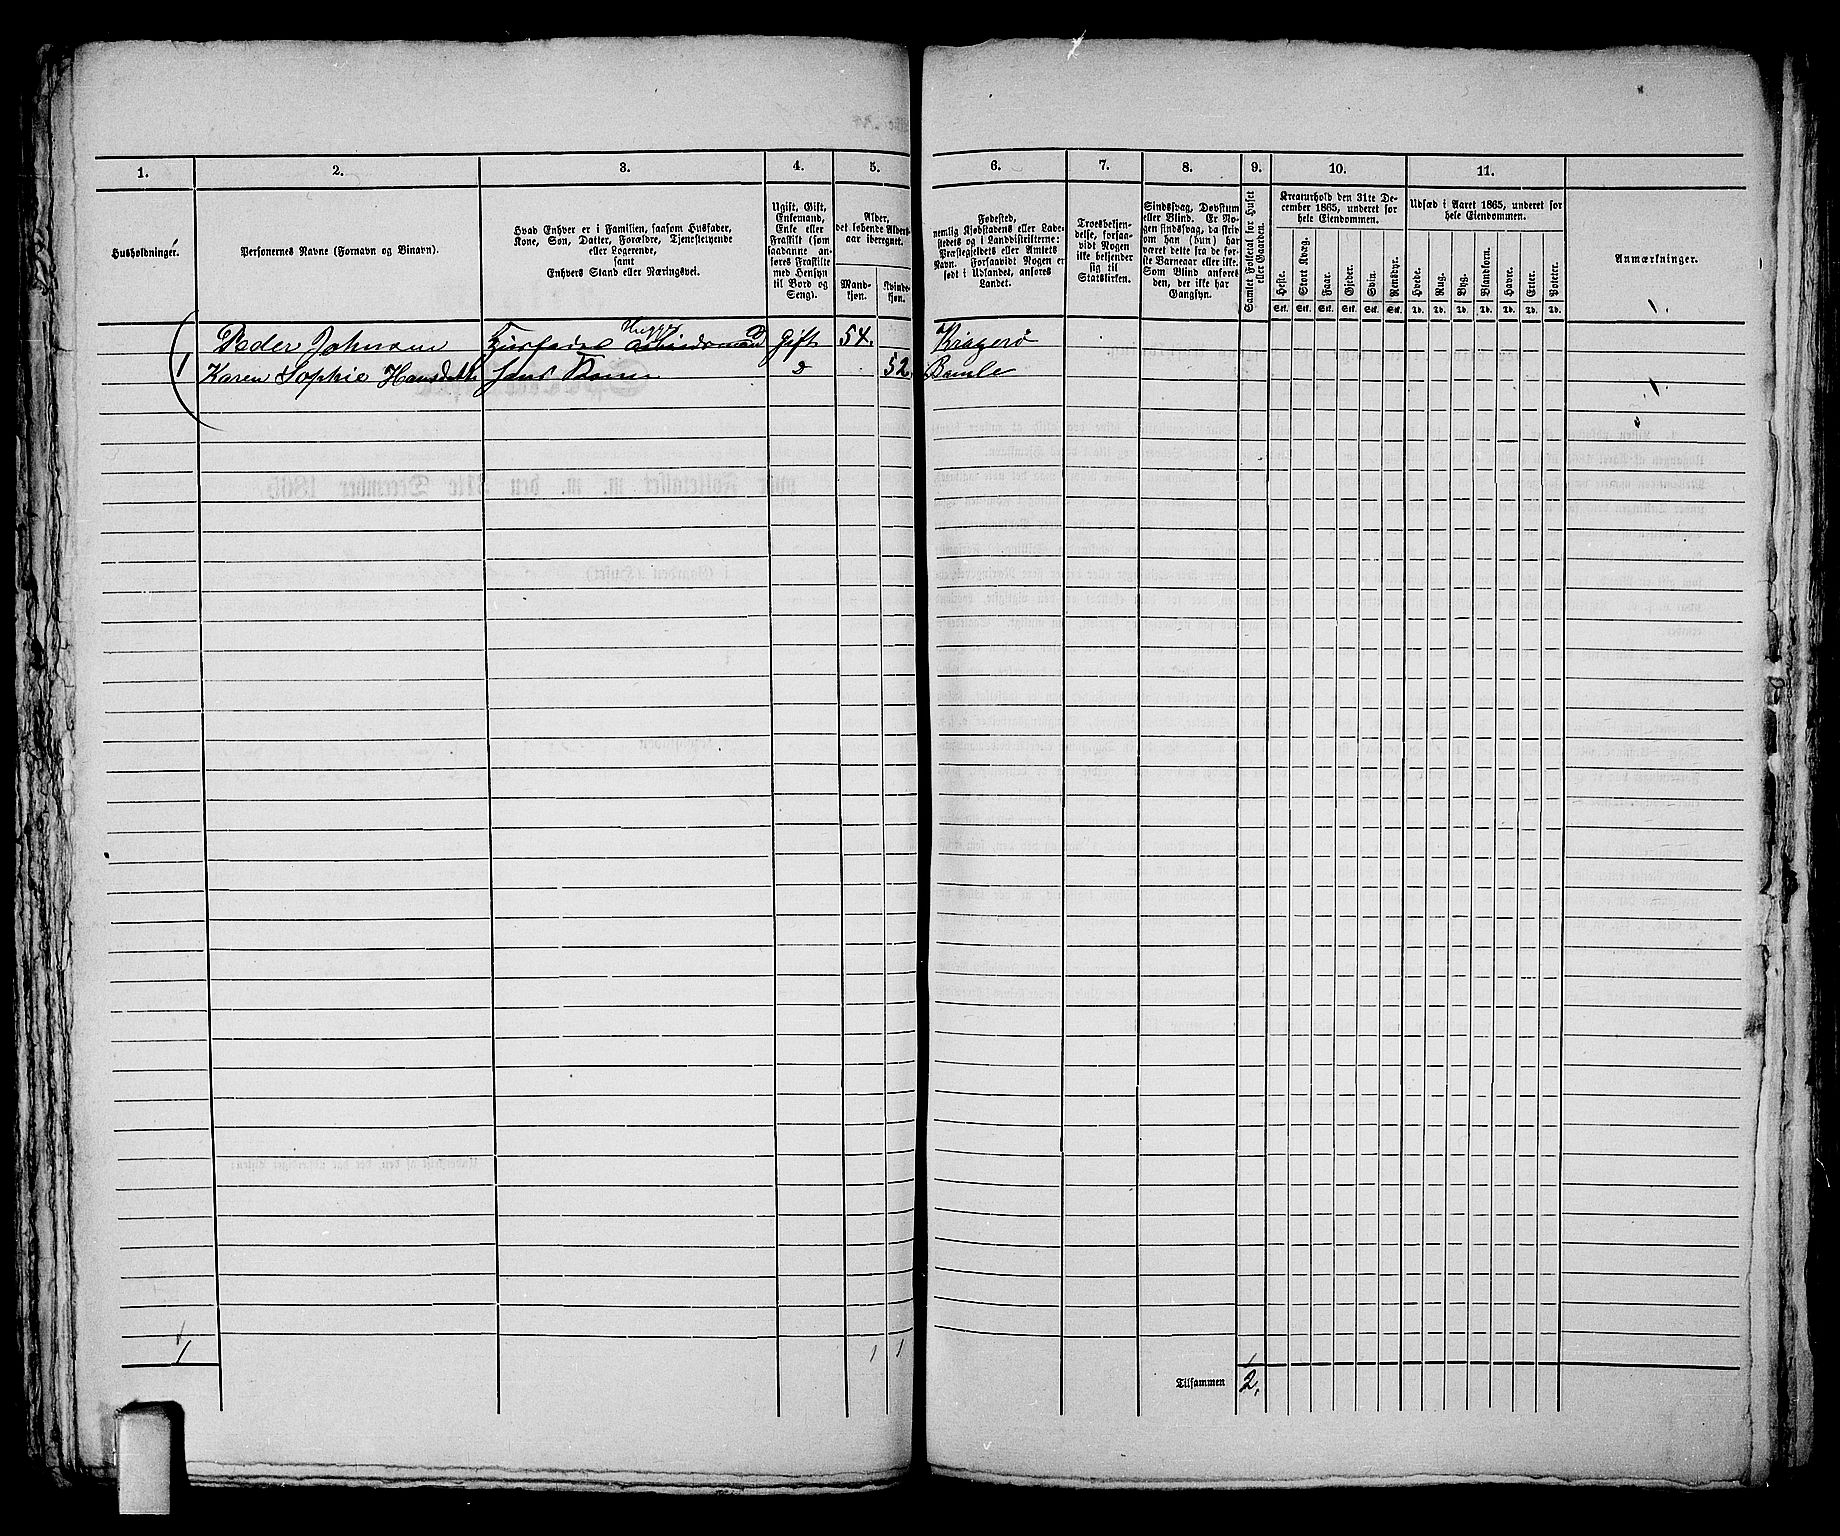 1. 2. 3. 4. 5. 6. 7. 8. 9. 10. 11.
Husholdninger.
Personernes Navne (Fornavn og Binavn).
Hvad Enhver er i Familien, saasom Husfader,
Kone, Søn, Datter, Forældre, Tjenestetyende
eller Logerende,
samt
Enhvers Stand eller Næringsvei.
Ugift, Gift,
Enkemand,
Enke eller
Fraskilt (som
saadanne an-
føres Fraskilte
med Hensyn
til Bord og
Seng).
Alder,
det løbende Alders-
aar iberegnet.
Mand-
kjøn.
Kvinde-
kjøn.
Fødested,
nemlig Kjøbstadens eller Lade-
stedets og i Landdistrifterne:
Præstegjeldets eller Amtets
Navn. Forsaavidt Nogen er
født i Udlandet, anføres
Landet.
Troesbekjen-
delse, forsaa-
vidt Nogen
ikke bekjender
sig til
Statskirken.
Sindssvag, Døvstum
eller Blind. Er No-
gen sindssvag, da skriv
om han (hun) har
været dette fra de før-
ste Barneaar eller ikke.
Som Blind anføres
den, der ikke har
Gangsyn.
Samlet Folketal for Huset
eller Gaarden.
Kreaturhold den 31te De-
cember 1865, underet for
hele Eiendommen.
Heste. Stort Kvæg. Faar. Gjeder. Svin. Rensdyr.
Stk. Stk. Stk. Stk. Stk. Stk.
Udsæd i Aaret 1865, underet for
hele Eiendommen.
Hvede. Rug. Byg. Blandkorn. Havre. Erter. Poteter.
Td. Td. Td. Td. Td. Td. Td.
Anmærkninger.
Peder Johnsen Huusfader Arbeidsmand Gift 54. Kragerø
1 Karen Sophie Hansdatt hans Kone 52. Bamle
1 1 1
Tilsammen 2.